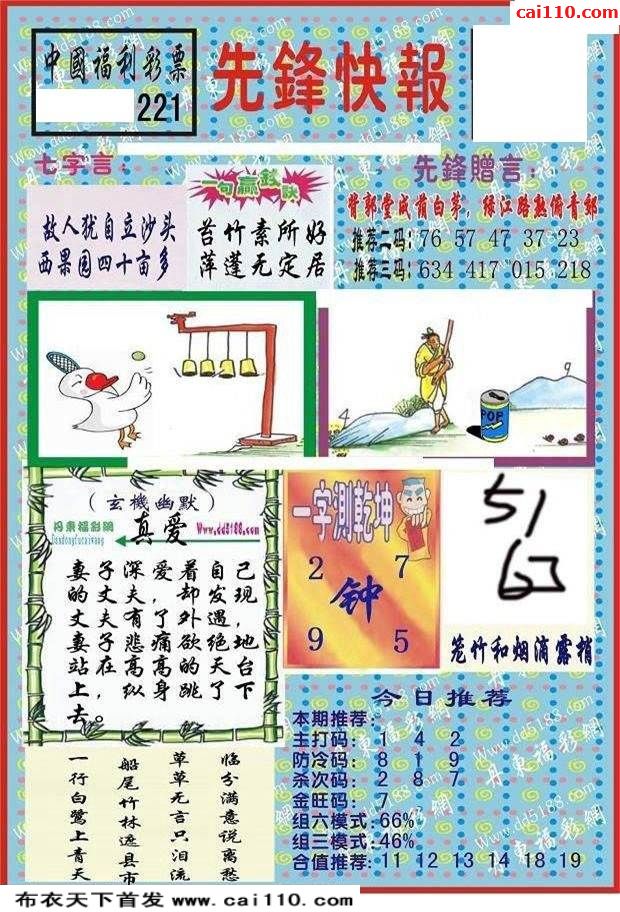 cai110.com
中國福利彩票
221
先鋒快報
七字言：
故人犹自立沙头
西果园四十亩多
一句赢钱诀
苔竹素所好
萍蓬无定居
先鋒贈言：
背郭堂成荫白茅，缘江路熟俯青郊
推荐二码：76 57 47 37 23
推荐三码：634 417 015 218
4
9
POP
（玄機幽默）
丹東福彩網
Dandongfucaiwang
Www.dd5188.com
真爱
妻子深爱着自己
的丈夫，却发现
丈夫有了外遇，
妻子悲痛欲绝地
站在高高的天台
上，纵身跳了下
去。
一字測乾坤
2 7
钟
9 5
51
笼竹和烟滴露梢
今日推荐
本期推荐：
主打码：1 4 2
防冷码：8 1 9
杀次码：2 8 7
金旺码：7
组六模式：66%
组三模式：46%
合值推荐：11 12 13 14 18 19
临分满意说离愁
草草无言只泪流
船尾竹林遮县市
一行白鹭上青天
布衣天下首发 www.cai110.com